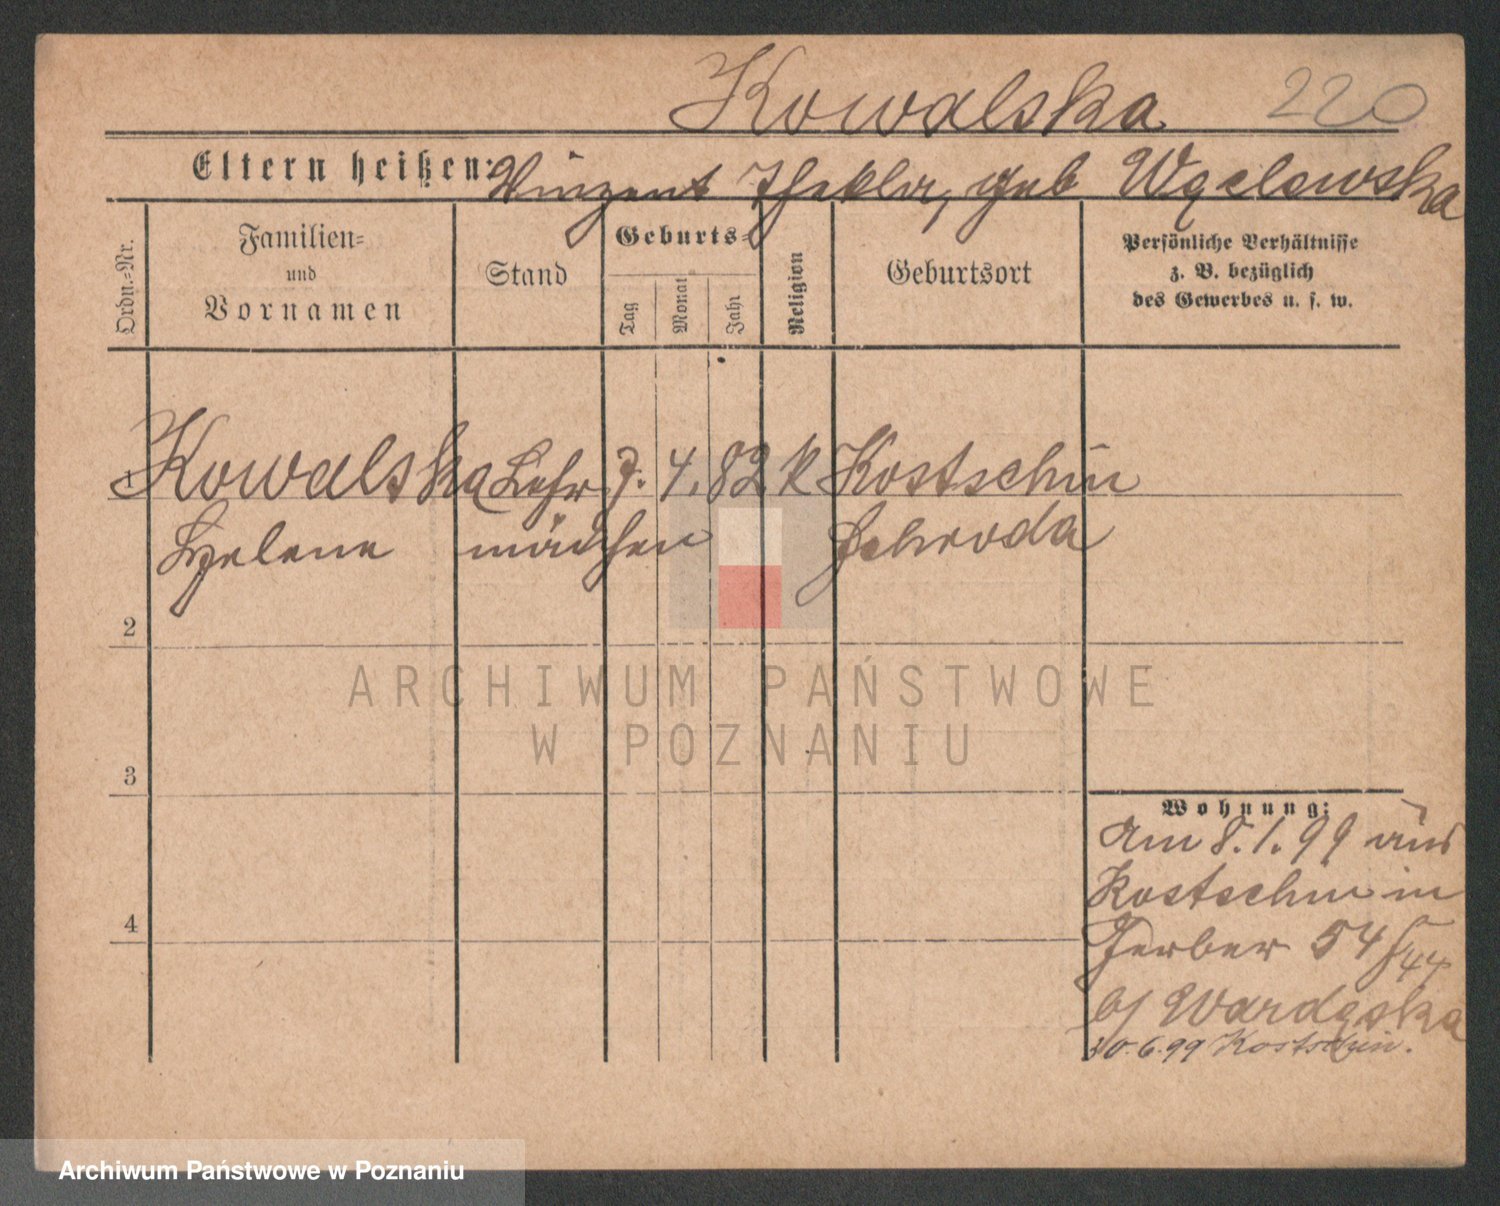 Kowalska 220
Eltern heißen: Vinzent Thekla, geb Węclewska
Ordn.=Nr.
Familien=
und
Vornamen
Stand
Geburts=
Tag
Monat
Jahr
Religion
Geburtsort
Persönliche Verhältnisse
z. B. bezüglich
des Gewerbes u. s. w.
1 Kowalska Lehr 7. 4. 82 K Kostschin
Helene mädchen Schroda
2
3
4
ARCHIWUM PAŃSTWOWE
W POZNANIU
Wohnung:
Am 8.1.99 aus
Kostschin in
Gerber 54
b/
10.6.99 Kostschin.
Archiwum Państwowe w Poznaniu